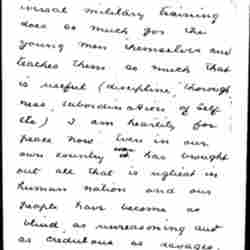 iversal military training
does so much for the
young men themselves and
teaches them so much that
is useful (discipline, thorough
ness, subordination of self
etc) I am heartily for
peace now. Even in our
own country war has brought
out all that is ugliest in
human nation and our
people have become as
blind, as unreasoning and
as credulous as savages.